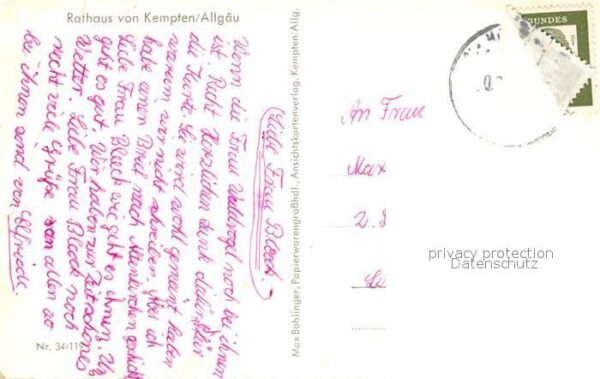 Rathaus von Kempten/Allgäu
Liebe Frau Block.
Wenn die Frau Waldvogel noch bei ihnen
ist. Recht Herzlichen dank dafür für
die Karte. Sie sind wohl gemeint haten
warum wir nicht schreiben. Aber ich
habe einen Brief nach Altenkirchen geschickt
Liebe Frau Block wie geht es ihnen. Uns
geht es gut. Wir haben zur Zeit schönes
Wetter. Liebe Frau Block noch
recht viele Grüße von allen zu
bei ihnen sind von Elfriede.
Nr. 34/119
Max Bohlinger, Papierwarengroßhdl., Ansichtskartenverlag, Kempten/Allg.
BUNDES
An Frau
Max
privacy protection
Datenschutz